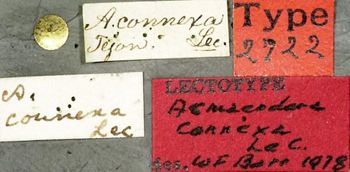 A. connexa
Tejon. Lec.
Type
2722
A.
connexa
Lec
LECTOTYPE
Acmaeodera
connexa
LeC.
des. WF Barr 1978